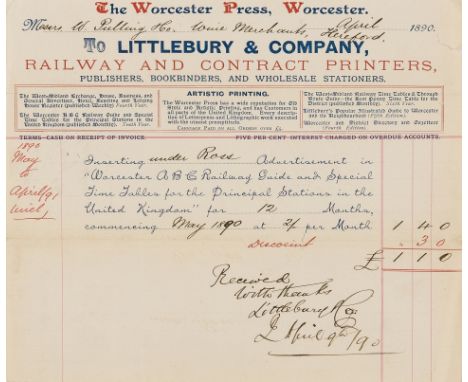 The Worcester Press, Worcester.
Messrs W. Pulling Ho. Wine Merchants, April 1890.
Hereford.
To LITTLEBURY & COMPANY,
RAILWAY AND CONTRACT PRINTERS,
PUBLISHERS, BOOKBINDERS, AND WHOLESALE STATIONERS.
ARTISTIC PRINTING.
The Worcester Press has a wide reputation for Old
Style and Artistic Printing, and has Customers in
all parts of the United Kingdom. Every description
of Letterpress and Lithographic work executed
with the utmost promptitude.
Carriage Paid on all Orders over £5.
The West-Midland Exchange, House, Business, and
The Worcester A B C Railway Guide and Special
Time Tables for the Principal Stations in the
United Kingdom (published Monthly). Fourth Year.
The West-Midland Railway Time Tables & Through
District (published Monthly). Sixth Year.
Littlebury's Popular Illustrated Guide to Worcester
and the Neighbourhood (Fifth Edition).
(Fourth Edition).
TERMS CASH ON RECEIPT OF INVOICE.
FIVE PER CENT INTEREST CHARGED ON OVERDUE ACCOUNTS.
1890
May
to
April/91
incl,
Inserting under Ross Advertisement in
"Worcester A B C Railway Guide and Special
Time Tables for the Principal Stations in the
United Kingdom" for 12 Months,
commencing May 1890 at 2/ per Month 1 4 0
Discount " 3 0
£ 1 1 0
Received
With thanks
Littlebury & Co
April 9th/90